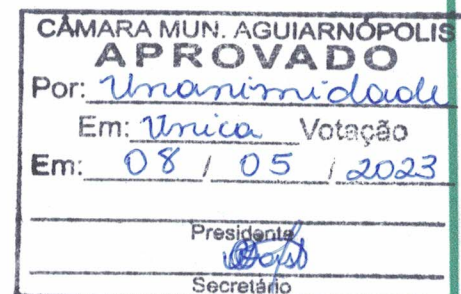 CÂMARA MUN. AGUIARNÓPOLIS
APROVADO
Por: Unanimidade
Em: Única Votação
Em: 08 / 05 / 2023
Presidente
Secretário